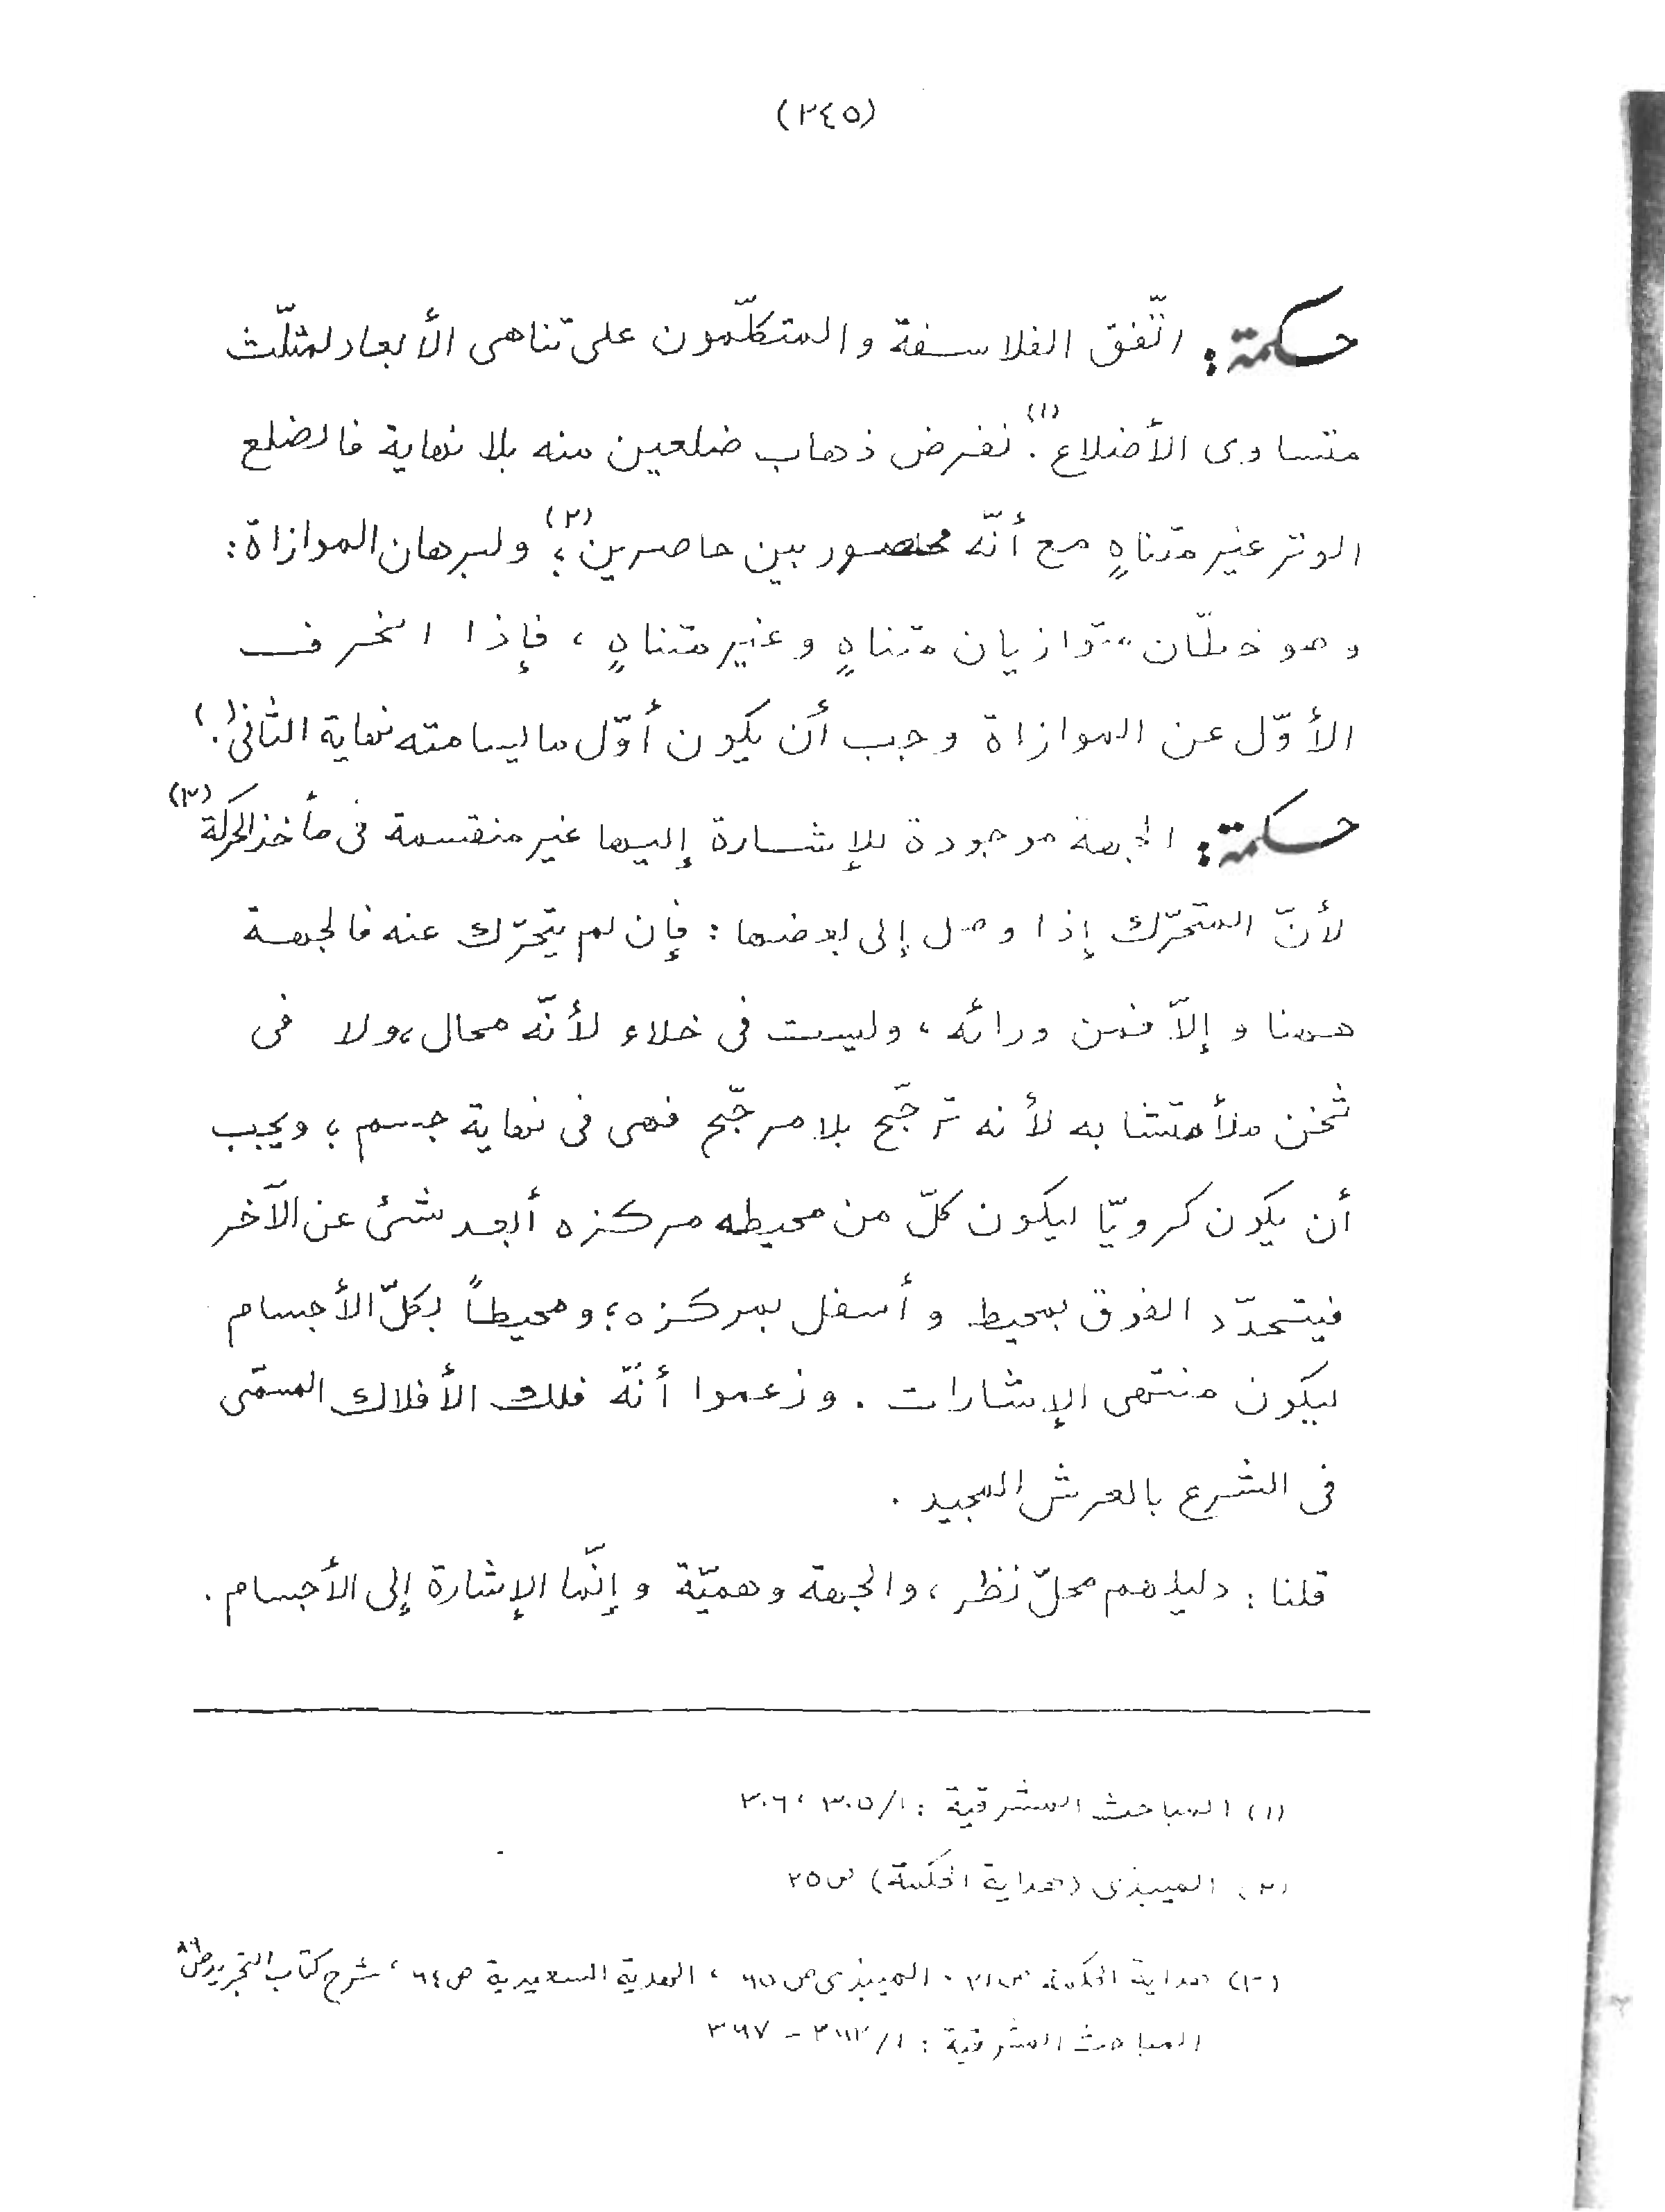 (٢٤٥)
حكمة: اتّفق الفلاسفة والمتكلّمون على تناهى الأبعاد لمثلّث
متساوى الأضلاع(١). نفرض ذهاب ضلعين منه بلا نهاية فالضلع
الوتر غير متناهٍ مع أنّه محصور بين حاصرين(٢)؛ ولبرهان الموازاة:
وهو خطّان متوازيان متناهٍ وغير متناهٍ، فإذا انحرف
الأوّل عن الموازاة وجب أن يكون أوّل ما يسامته نهاية الثانى.
حكمة: الجهة موجودة للإشارة إليها غير منقسمة فى مأخذ الحركة(٣)
لأنّ المتحرّك إذا وصل إلى بعضها: فإن لم يتحرّك عنه فالجهة
ههنا وإلاّ فمن ورائه، وليست فى خلاء لأنّه محال، ولا فى
ثخن ملأ متشابه لأنه ترجّح بلا مرجّح فهى فى نهاية جسم؛ ويجب
أن يكون كرويّا ليكون كلّ من محيطه مركزه أبعد شئ عن الآخر
فيتحدّد الفوق بمحيط وأسفل بمركزه؛ ومحيطاً بكلّ الأجسام
ليكون منتهى الإشارات. وزعموا أنّه فلك الأفلاك المسمّى
فى الشرع بالعرش المجيد.
قلنا: دليلهم محلّ نظر، والجهة وهميّة وإنّما الإشارة إلى الأجسام.
(١) المباحث المشرقية: ١/٣٠٥، ٣٠٦
(٢) الميبذى (هداية الحكمة) ص٢٥
(٣) هداية الحكمة ص٢١، الميبذى ص٦٥، الهدية السعيدية ص٦٤، شرح كتاب التجريد ص٨٩
المباحث المشرقية: ١/